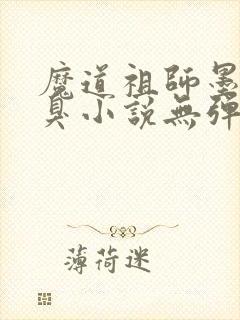 魔道祖師墨
臭小說無彈
薄荷迷